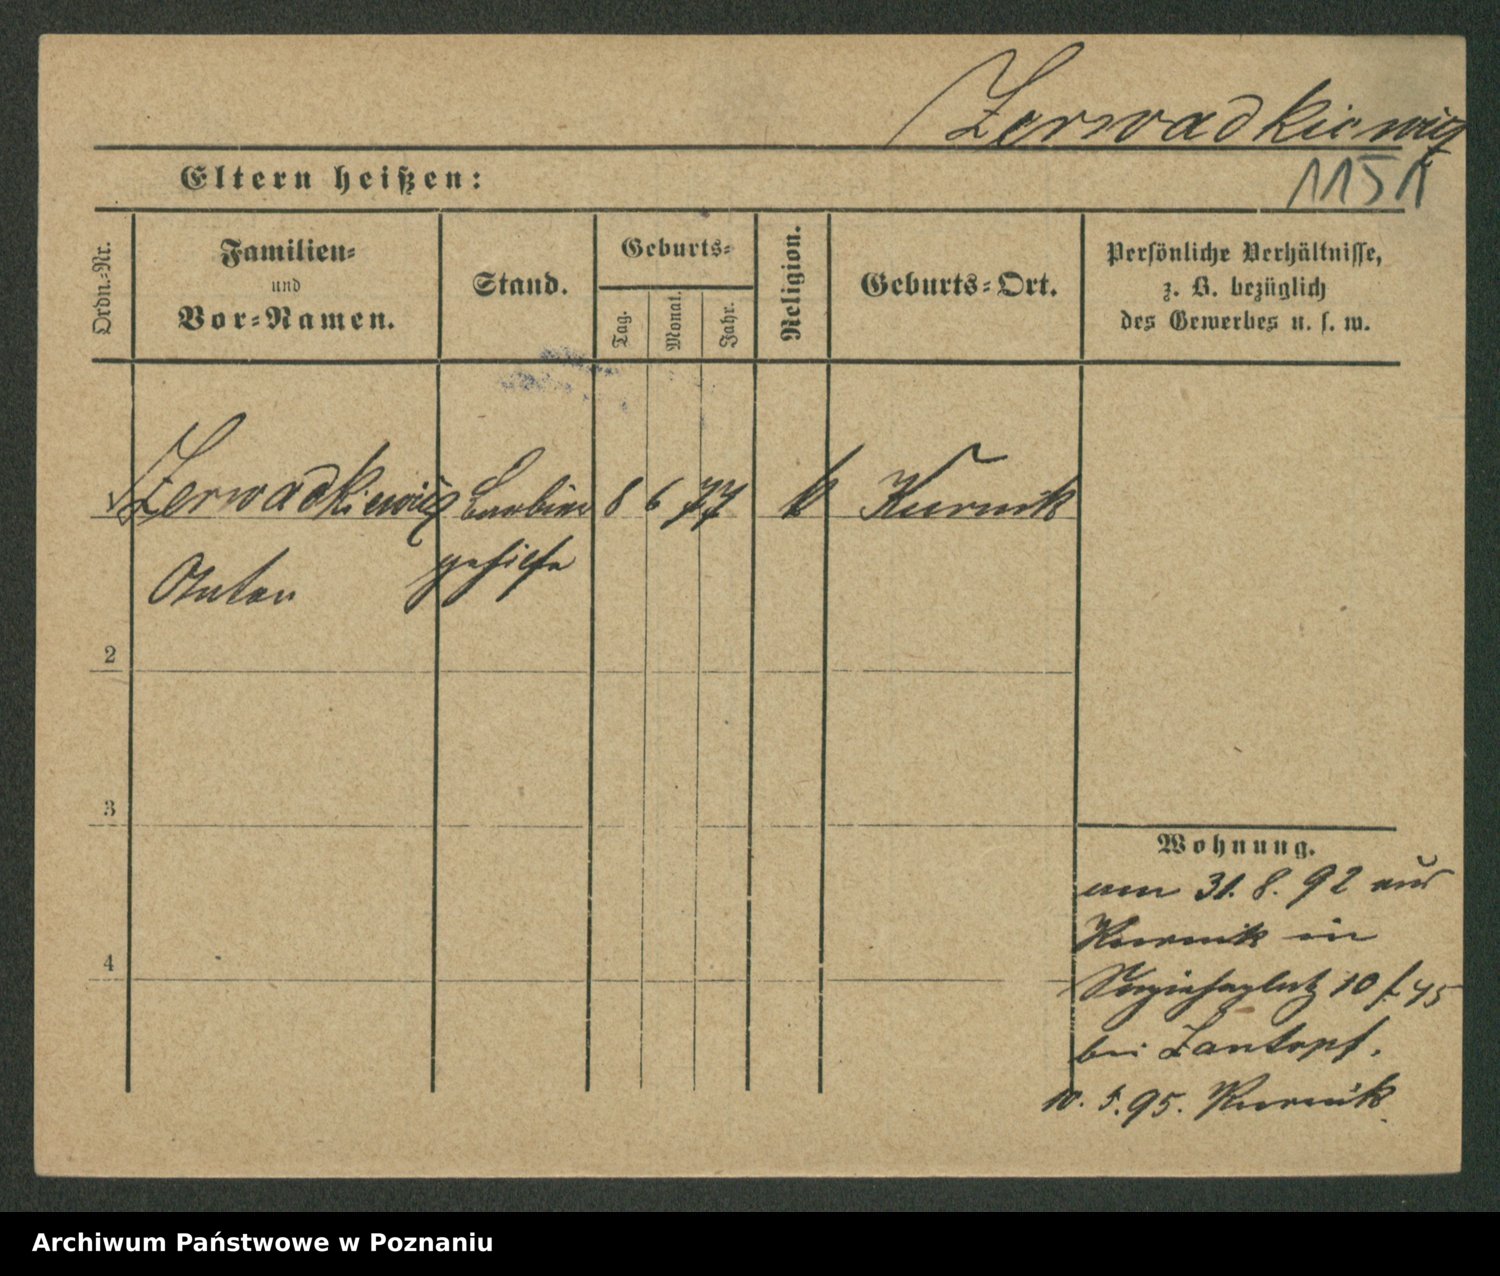 Zerwadkiewicz
1151
Eltern heißen:
Ordn.-Nr.
Familien-
und
Vor-Namen.
Stand.
Geburts-
Tag.
Monat.
Jahr.
Religion.
Geburts-Ort.
Persönliche Verhältnisse,
z. B. bezüglich
des Gewerbes u. s. w.
Zerwadkiewicz Barbier 8 6 77 k Kurnik
Anton gehilfe
2
3
4
Wohnung.
am 31. 8. 92 aus
Kurnik in
10
bei
10. 5. 95. Kurnik.
Archiwum Państwowe w Poznaniu